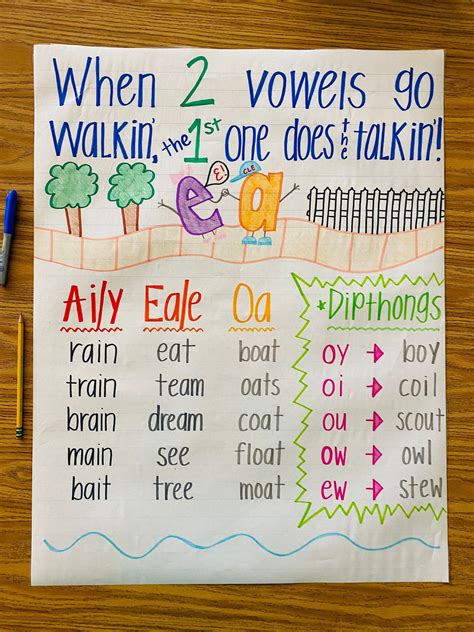 When 2 vowels go
walkin', the 1st one does the talkin'!
E!
CLE
ea
Ai/y Ea/e Oa *Dipthongs
rain eat boat oy → boy
train team oats oi → coil
brain dream coat ou → scout
main see float ow → owl
bait tree moat ew → stew